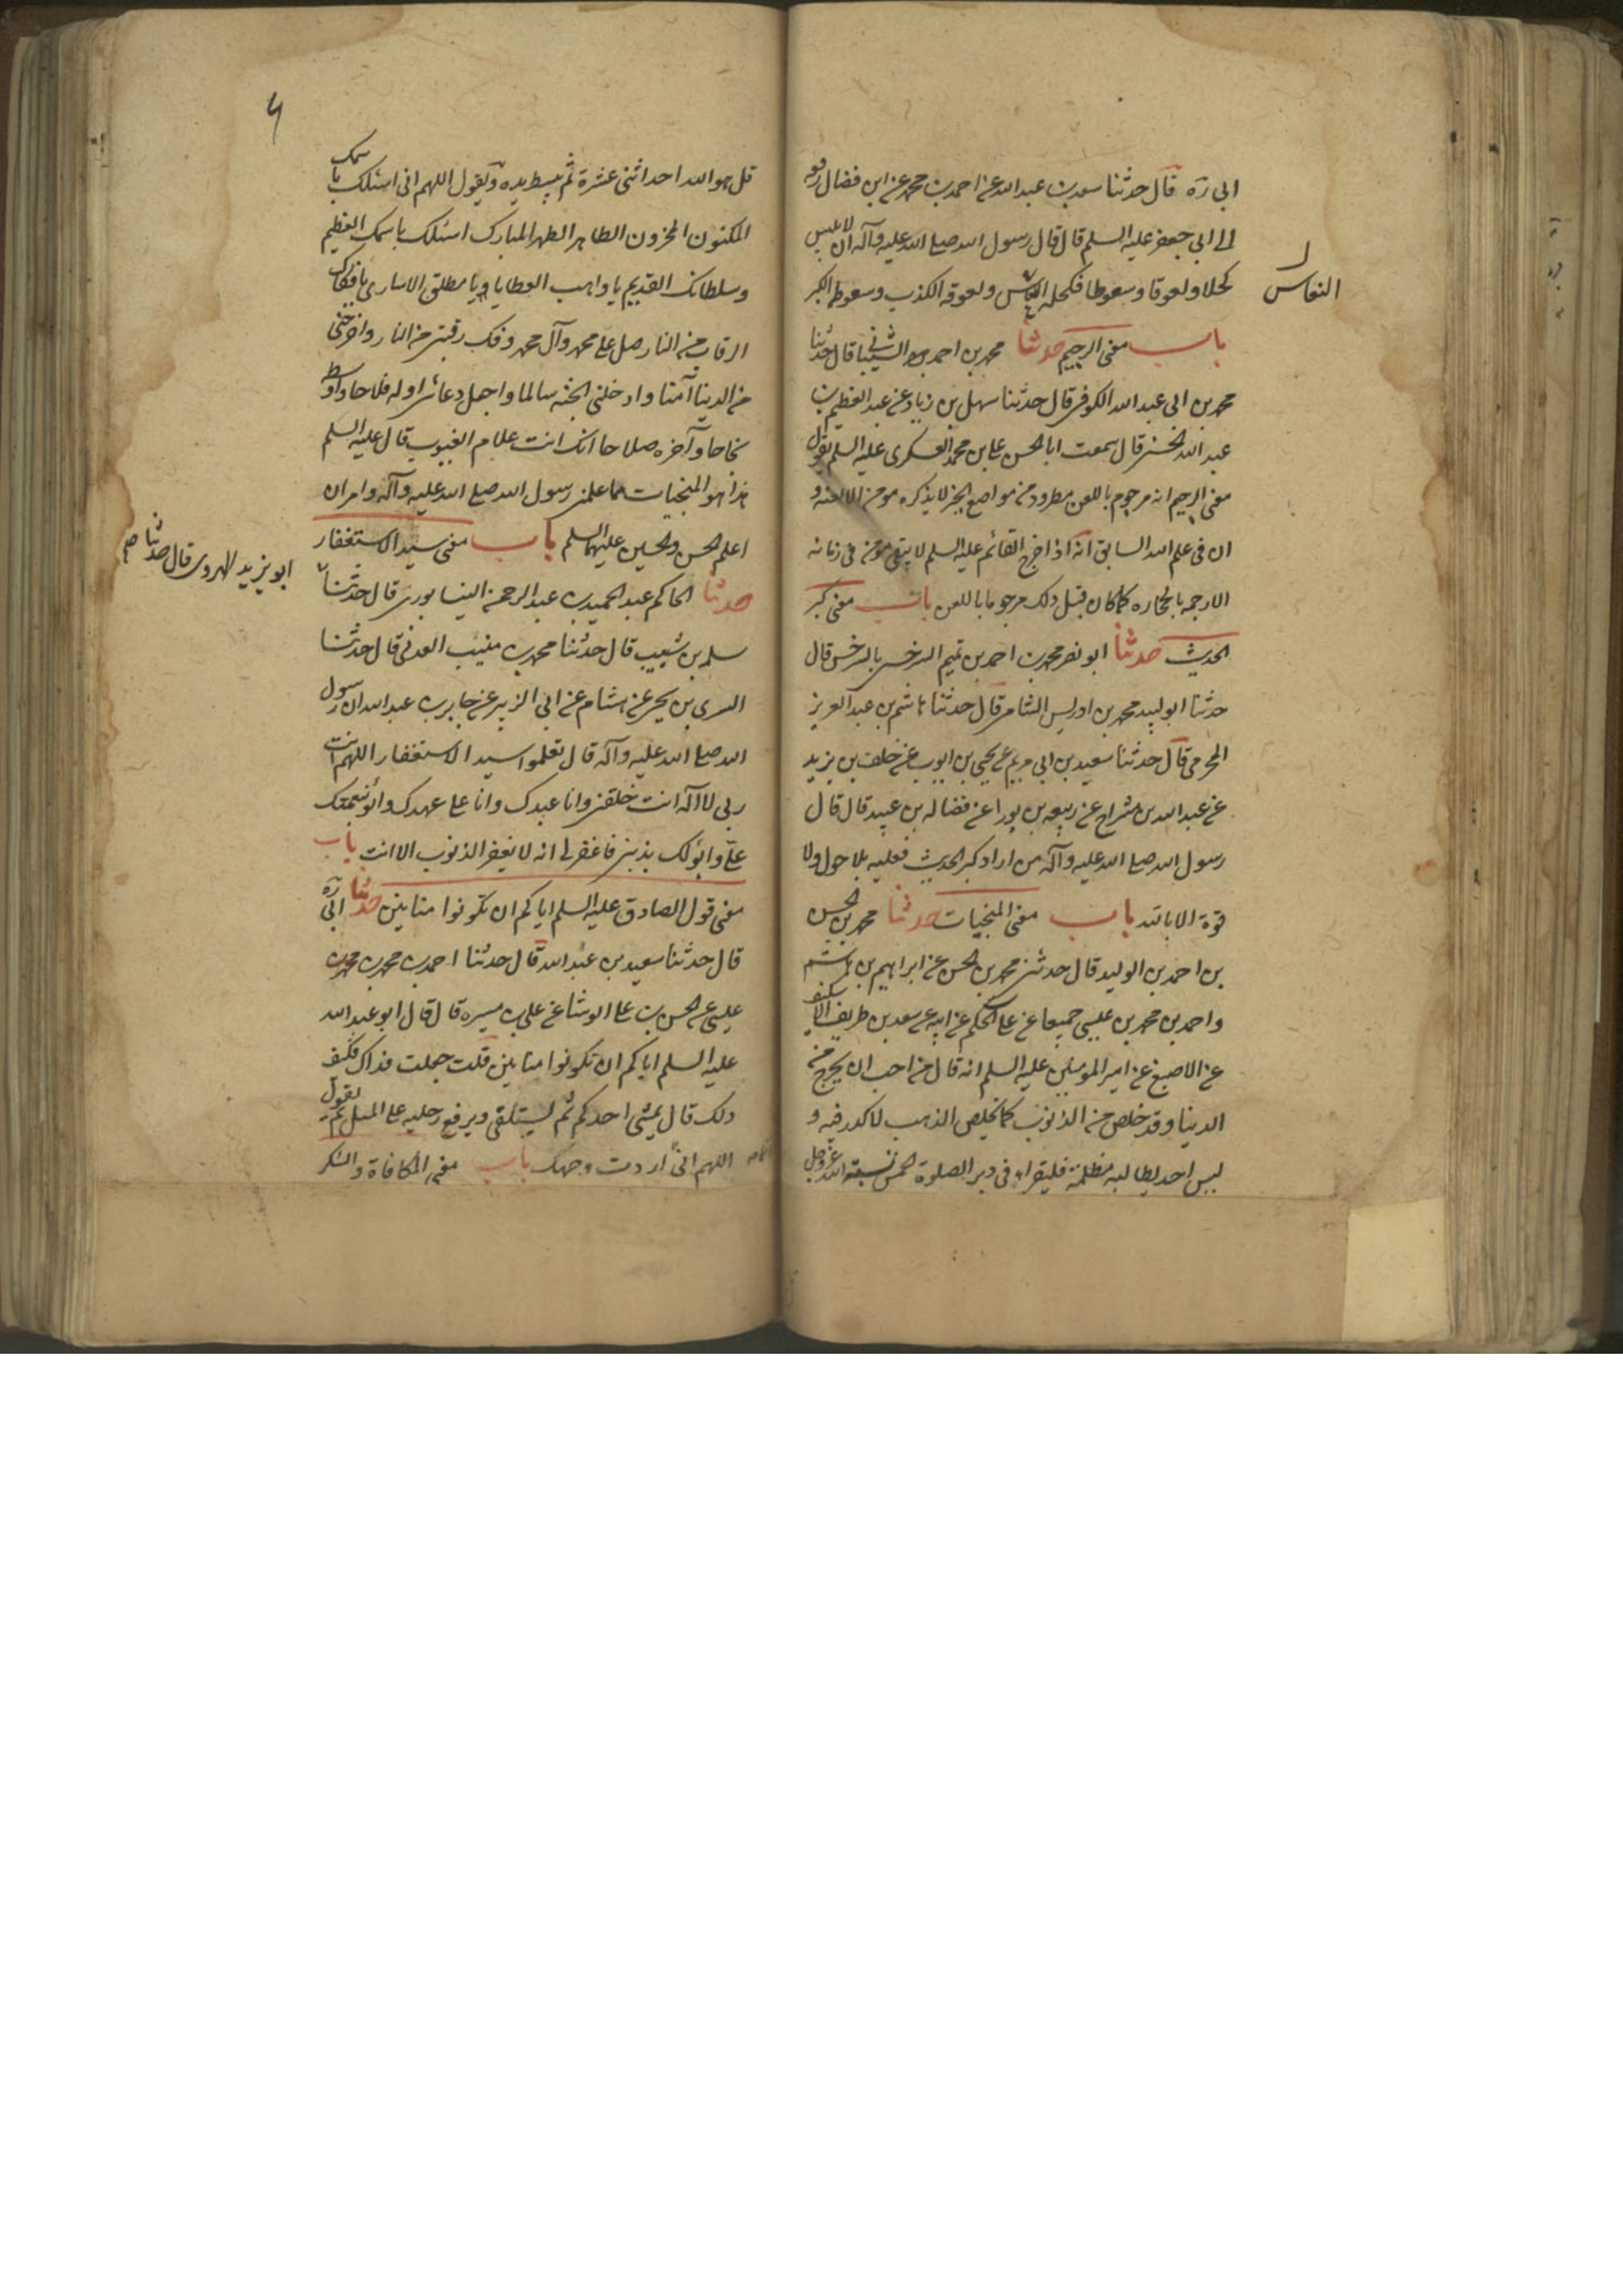 ابى ره قال حدثنا سعد بن عبد الله عن احمد بن محمد عن ابن فضال رفعه
الى ابى جعفر عليه السلم قال قال رسول الله صلى الله عليه وآله ان لابليس
كحلا ولعوقا وسعوطا فكحله النعاس ولعوقه الكذب وسعوطه الكبر
النعاس
باب معنى الرجيم حدثنا محمد بن احمد الشيبانى قال حدثنا
محمد بن ابى عبد الله الكوفى قال حدثنا سهل بن زياد عن عبد العظيم بن
عبد الله الحسنى قال سمعت ابا الحسن على بن محمد العسكرى عليه السلم يقول
معنى الرجيم انه مرجوم باللعن مطرود من مواضع الخير لا يذكره مومن الا لعنه و
ان فى علم الله السابق انه اذا خرج القائم عليه السلم لا يبقى مومن فى زمانه
الا رجمه بالحجاره كما كان قبل ذلك مرجوما باللعن باب معنى كبر
الحديث حدثنا ابو نصر محمد بن احمد بن تميم السرخسى بالسرخس قال
حدثنا ابو لبيد محمد بن ادريس الشامى قال حدثنا هاشم بن عبد العزيز
المخرمى قال حدثنا سعيد بن ابى مريم عن يحيى بن ايوب عن خلف بن يزيد
عن عبد الله بن مشراح عن ربيعه بن بورا عن فضاله بن عبيد قال قال
رسول الله صلى الله عليه وآله من اراد كبر الحديث فعليه بلا حول ولا
قوة الا بالله باب معنى المنجيات حدثنا محمد بن الحسن
بن احمد بن الوليد قال حدثنى محمد بن الحسن عن ابراهيم بن هاشم
واحمد بن محمد بن عيسى جميعا عن على الحكم عن ابيه عن سعد بن طريف الاسكنف
عن الاصبغ عن امير المومنين عليه السلم انه قال من احب ان يخرج من
الدنيا وقد خلص من الذنوب كما يخلص الذهب لا كدر فيه و
ليس احد يطالبه بمظلمة فليقرا فى دبر الصلوة الخمس نسبة الله عز وجل
قل هو الله احد اثنى عشرة ثم يبسط يده ويقول اللهم انى اسئلك باسمك
المكنون المخزون الطاهر الطهر المبارك اسئلك باسمك العظيم
وسلطانك القديم يا واهب العطايا ويا مطلق الاسارى يا فكاك
الرقاب من النار صل على محمد وآل محمد وفك رقبتى من النار واخرجنى
من الدنيا آمنا وادخلنى الجنه سالما واجعل دعائى اوله فلاحا واوسطه
نجاحا وآخره صلاحا انك انت علام الغيوب قال عليه السلم
هذا هو المنجيات مما علمنى رسول الله صلى الله عليه وآله وامران
اعلم الحسن والحسين عليهما السلم باب معنى سيد الاستغفار
حدثنا الحاكم عبد الحميد بن عبد الرحمن النيسابورى قال حدثنا
ابو يزيد الهروى قال حدثنا صح
سلمه بن شبيب قال حدثنا محمد بن منيب العدنى قال حدثنا
السرى بن يحيى عن هشام عن ابى الزبير عن جابر بن عبد الله ان رسول
الله صلى الله عليه وآله قال تعلموا سيد الاستغفار اللهم انت
ربى لا اله انت خلقتنى وانا عبدك وانا على عهدك وابوء بنعمتك
على وابوء لك بذنبى فاغفر لى انه لا يغفر الذنوب الا انت باب
معنى قول الصادق عليه السلم اياكم ان تكونوا منانين حدثنا ابى ره
قال حدثنا سعيد بن عبد الله قال حدثنا احمد بن محمد بن
عيسى عن الحسن بن على الوشا عن على بن ميسره قال قال ابو عبد الله
عليه السلم اياكم ان تكونوا منانين قلت جعلت فداك فكيف
ذلك قال يمشى احدكم ثم ليستلقى ويرفع رجليه على الميل ثم يقول
اللهم انى اردت وجهك باب معنى المكافاة والشكر